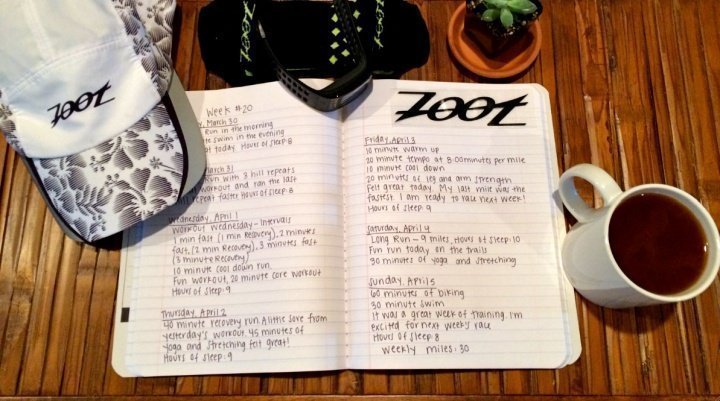 ZOOT
ZOOT
Week #20
y, March 30
Run in the morning
swim in the evening
today. Hours of sleep: 8
March 31
Run with 3 hill repeats
workout and ran the last
hill repeat faster. Hours of sleep: 8
Wednesday, April 1
Workout Wednesday - Intervals
1 min fast (1 min Recovery), 2 minutes
fast, (2 min Recovery), 3 minutes fast
(3 minute Recovery)
10 minute cool down run.
Fun workout, 20 minute core workout
Hours of sleep: 9
Thursday, April 2
40 minute recovery run. A little sore from
yesterday's workout. 45 minutes of
yoga and stretching felt great!
Hours of sleep: 9
ZOOT
Friday, April 3
10 minute warm up
20 minute tempo at 8:00 minutes per mile
10 minute cool down
20 minutes of leg and arm strength
Felt great today. My last mile was the
fastest. I am ready to race next week!
Hours of sleep: 9
Saturday, April 4
Long Run - 9 miles, Hours of sleep: 10
Fun run today on the trails
30 minutes of yoga and stretching
Sunday, April 5
60 minutes of biking
30 minute swim
It was a great week of training. I'm
excited for next week's race
Hours of sleep: 8
Weekly miles: 30